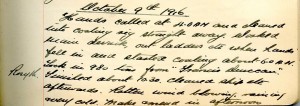 October 9th 1916
Hands called at 4.00AM and cleared
into coaling rig straight away slaked
main derrick, out ladders etc when hands
fell in and started coaling about 6.00AM
Took in 980 tons from "Francis Duncan"
Rosyth. Finished about 10.30. cleaned ship etc
afterwards. Rotten wind blowing, raining
very cold. Make and mend in afternoon